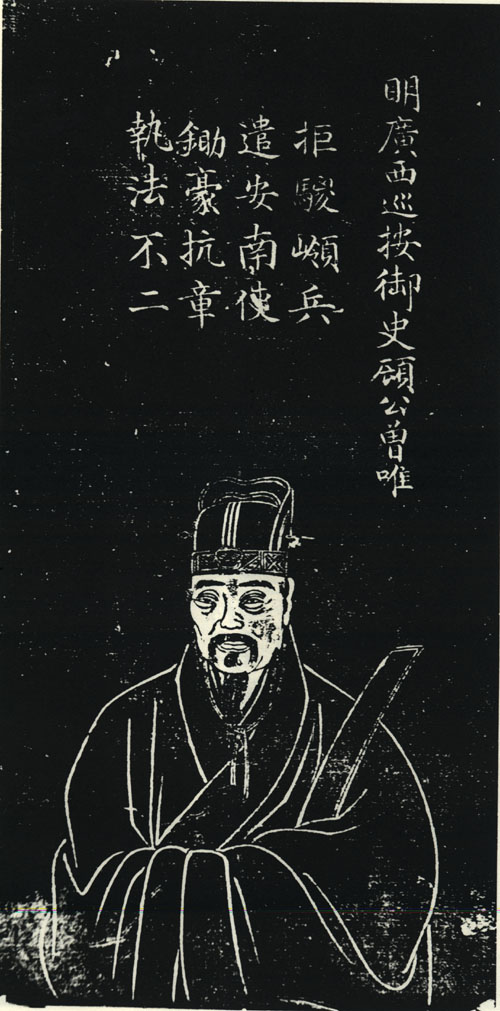 明廣西巡按御史顧公曾唯
拒駿㒹兵
遣安南使
鋤豪抗章
執法不二